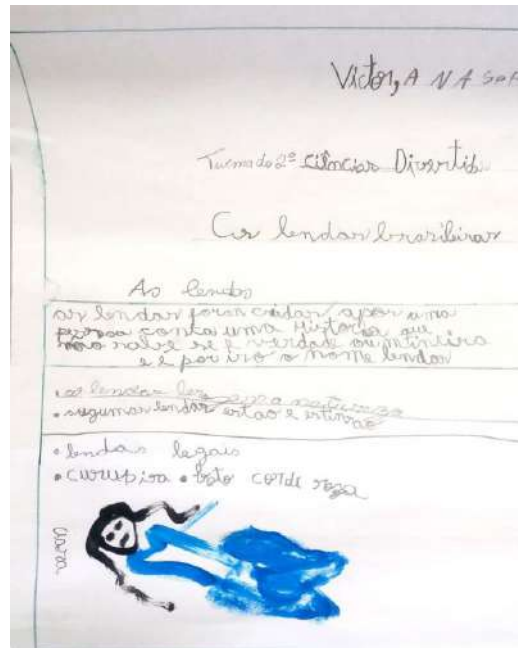 Victor, ANA SOF
Turma do 2º Ciências Divertid
As lendas brasileiras
As lendas
as lendas foron criadas apos uma
pessoa conta uma Historia que
não sabe se é verdade ou mintira
e é por iso o nome lendas
• as lendas
• augumas lendas estao e estinsão
• lendas legais
• curupira • boto cor de roza